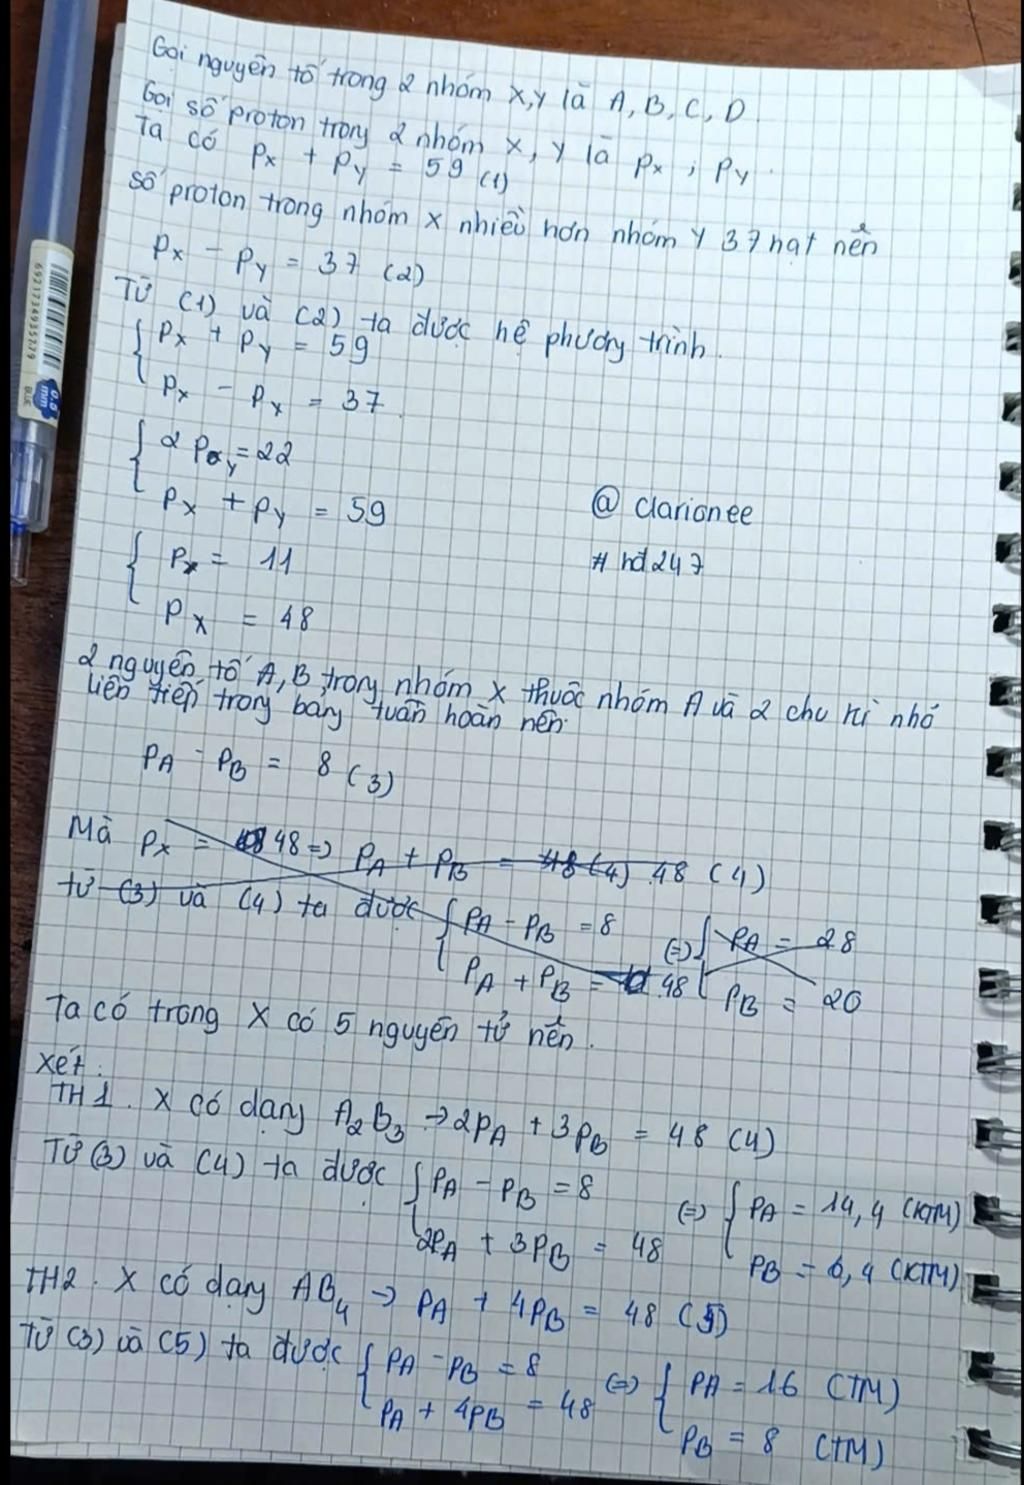 Gọi nguyên tố trong 2 nhóm X, Y là A, B, C, D.
Gọi số proton trong 2 nhóm X, Y là Px ; Py.
Ta có Px + Py = 59 (1)
số proton trong nhóm X nhiều hơn nhóm Y 37 hạt nên
Px - Py = 37 (2)
Từ (1) và (2) ta được hệ phương trình.
{ Px + Py = 59
Px - Px = 37.
{ 2Py = 22
Px + Py = 59
@ clarionee
{ Px = 11
# hđ247
Px = 48
2 nguyên tố A, B trong nhóm X thuộc nhóm A và 2 chu kì nhỏ
liên tiếp trong bảng tuần hoàn nên:
PA - PB = 8 (3)
Mà Px = 48 => PA + PB = 48 (4) 48 (4)
từ (3) và (4) ta được { PA - PB = 8 (=) { PA = 28
PA + PB = 48 PB = 20
Ta có trong X có 5 nguyên tử nên.
Xét:
TH1. X có dạng A2B3 → 2PA + 3PB = 48 (4)
Từ (3) và (4) ta được { PA - PB = 8 (=) { PA = 14,4 (KTM)
2PA + 3PB = 48 PB = 6,4 (KTM)
TH2. X có dạng AB4 → PA + 4PB = 48 (5)
Từ (3) và (5) ta được { PA - PB = 8 (=) { PA = 16 (TM)
PA + 4PB = 48 PB = 8 (TM)
6921734935279
0.5
mm
BLUE